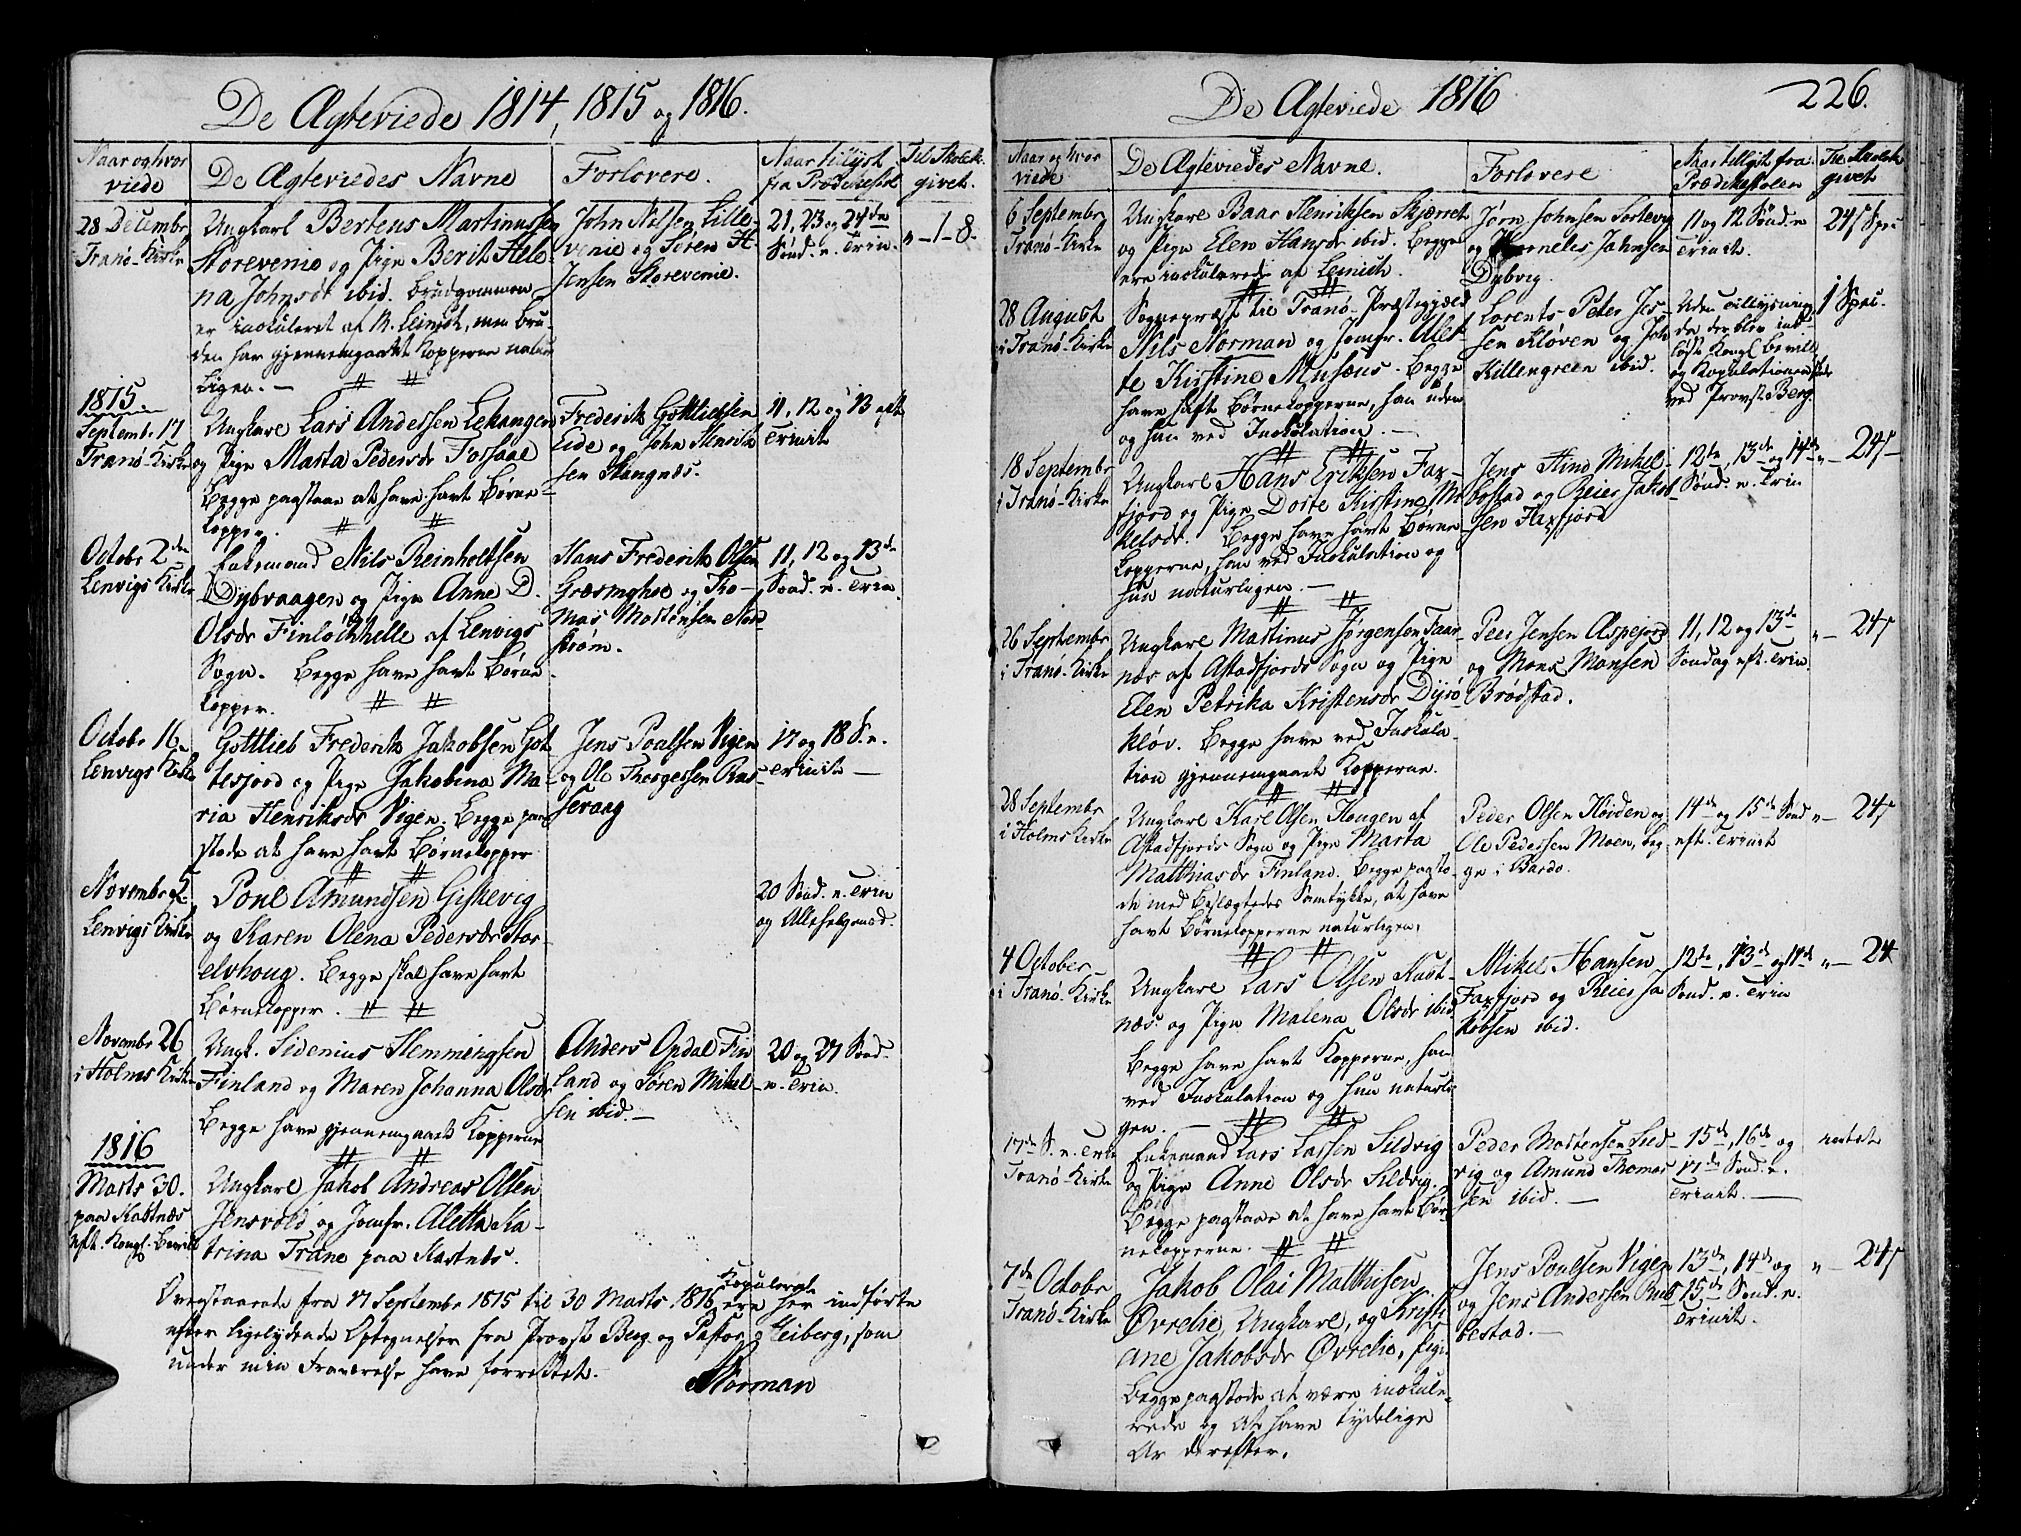 De Ægteviede 1814, 1815 og 1816.
Naar og hvor
viede
De Ægteviedes Navne
Forlovere.
Naar tillyst
fra Prædikestol
Til Skolek.
givet.
28 Decembr
Tranø-Kirke
Ungkarl Bertens Martinussen
Storevenie og Pige Berit Hele-
na Johnsdr ibid. Brudgommen
er inokuleret af N. Leinich, men Bru-
den har gjennemgaaet Kopperne natur
ligen. —
John Nilsen Lille-
venie og Søren H.
Jensen Storevenie.
21, 23 og 24de
Sønd. e. Trin.
" - 1 - 8.
1815
Septemb. 17
Tranø-Kirke
Ungkarl Lars Anderssen Lekangen
og Pige Marta Pedersdr Forsaae
Begge paastaae at have havt Børne-
kopper.
Frederik Gottliebsen
Eide og John Henrik
sen Stangnæs.
11, 12 og 13 eft
Trinit
Octobr 2den
Lenvigs Kirke
Enkemand Nils Reinholtsen
Dybvaagen og Pige Anne D.
Olsdr Finlökhelle af Lenvigs
Sogn. Begge have havt Børne
kopper.
Hans Frederik Olsen
Græsmyhre og Tho-
mas Mortensen Nord
strøm.
11, 12 og 13de
Sønd. e. Trin.
Octobr 16
Lenvigs Kirke
Gottlieb Frederik Jakobsen Got
tesjord og Pige Jakobina Ma-
ria Henriksdr Vigen. Begge paa
stode at have havt Børnekopper
Jens Poalsen Vigen
og Ole Thorgersen Ros
sevaag
17 og 18 S. e.
Trinit —
Novembr 5
Lenvigs Kirke
Poul Amundsen Giskevig
og Karen Olena Pedersdr Stor-
elvhoug. Begge skal have havt
Børnekopper.
20 Sønd. e. Trin
og Allehelgensd.
Novembr 26
i Holms Kirke
Ungk. Sidenius Hemmingsen
Finland og Maren Johanna Olsdr
Begge have gjennemgaaet Kopperne
Anders Opdal Fin
land og Søren Mikel
sen ibid. —
20 og 21 Sønd.
e. Trin.
1816
Marts 30.
paa Kastnæs
eft. Kongl. Bevill
Ungkarl Jakob Andreas Olsen
Jensvold og Jomfr. Aletta Ka-
trina Trane paa Kastnes.
Ovenstaaende fra 17 Septembr 1815 til 30 Marts 1816 Kopulerede ere her indførte
efter ligelydende Optegnelser fra Provst Berg og Pastor Heiberg, som
under min Fraværelse have forrettet.
Norman
De Ægteviede 1816
226.
Naar og hvor
viede
De Ægteviedes Navne.
Forlovere
Naar tillyst fra
Prædikestolen
Til Skolek
givet
6 Septembr
Tranø-Kirke
Ungkarl Baar Henriksen Skjærret
og Pige Elen Hansdr ibid. Begge
ere inokulerede af Leinich.
Jørn Johnsen Sortevig
og Kornelis Johnsen
Dybvig.
11 og 12 Sønd. e
Trinit.
24 s Spe
28 August
i Tranø-Kirke
Sognepræst til Tranø-Præstegjæld
Nils Norman og Jomfr. Alet-
te Kirstine Musæus. Begge
have haft Børnekopperne, han uden
og hun ved Inokulation. —
Lorents Peter Jes-
sen Kløven og Joh
Killengreen ibid.
Uden tillysning
da der blev ind-
løst Kongl Bevill
og Kopulationen skede
ved Provst Berg.
1 Spec.
18 Septembr
i Tranø-Kirke
Ungkarl Hans Eriksen Fax-
fjord og Pige Dorte Kirstine Mi
kelsdr. Begge have havt Børne
kopperne, han ved Inokulation og
hun naturligen. —
Jens Hind Mikel-
bostad og Reier Jakob
sen Faxfjord
12te, 13de og 14de
Sønd. e. Trin
" - 24 s -
26 Septembr
i Tranø-Kirke
Ungkarl Martinus Jørgensen Faar-
næs af Astadfjords Sogn og Pige
Elen Petrika Kristensdr Dyrö
kløv. Begge have ved Inokula-
tion gjennemgaaet Kopperne.
Peer Jensen Aspejord
og Mons Monsen
Brødstad.
11, 12 og 13de
Søndag eft. Trin.
" - 24 s
28 Septembr
i Holms Kirke
Ungkarl Karl Olsen Hougen af
Astadfjords Sogn og Pige Marta
Matthiasdr Finland. Begge paasto-
de med Beslægtedes Samtykke, at have
havt Børnekopperne naturligen.
Peder Olsen Heiden og
Ole Pedersen Moen, beg-
ge i Bardo.
14de og 15de Sønd
eft. Trinit
" - 24 s
4 October
i Tranø-Kirke
Ungkarl Lars Olsen Kast-
næs og Pige Malena Olsdr ibid
Begge have havt Kopperne, han
ved Inokulation og hun naturli-
gen. —
Mikel Hansen
Faxfjord og Reier Ja
kobsen ibid.
12te, 13de og 14de
Sønd. e. Trin
" - 24
17de S. e. Trin
Tranø-Kirke
Enkemand Lars Larsen Sildvig
og Pige Anne Olsdr Sildvig.
Begge paastaae at have havt Bør-
nekopperne.
Peder Mortensen Sild-
vig og Amund Thomas
sen ibid. —
15de, 16de og
17de Sønd. e.
Trinit. —
intet
7de Octobr
Tranø-Kirke
Jakob Olai Matthisen
Øvrelie, Ungkarl, og Kristi
ane Jakobsdr Øvrelie, Pige.
Begge paastode at være inokule-
rede og at have tydelige
Ar derefter.
Jens Poulsen Vigen
og Jens Andersen Rub
bestad. —
13de, 14de og
15de Sønd. e.
Trinit.
" - 24 s